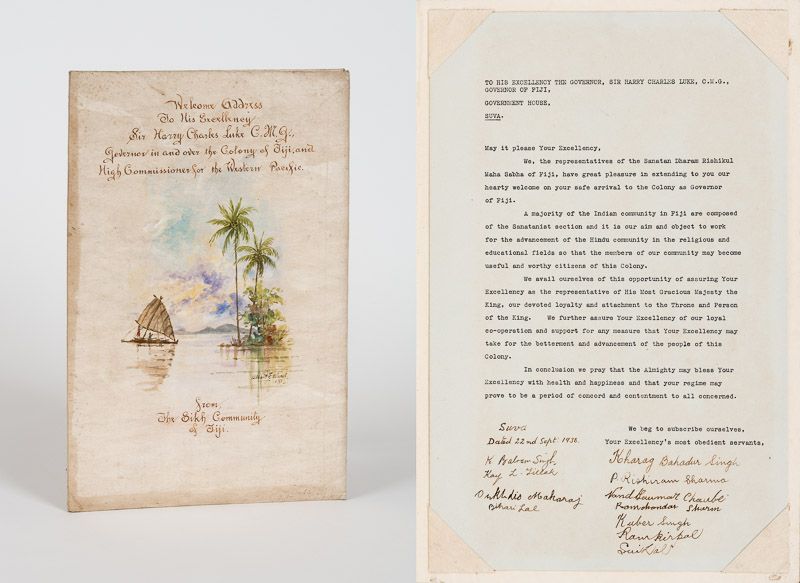 Welcome Address
To His Excellency
Sir Harry Charles Luke C.M.G.,
Governor in and over the Colony of Fiji, and
High Commissioner for the Western Pacific.
from
The Sikh Community
of Fiji.
TO HIS EXCELLENCY THE GOVERNOR, SIR HARRY CHARLES LUKE, C.M.G.,
GOVERNOR OF FIJI,
GOVERNMENT HOUSE,
SUVA.
May it please Your Excellency,
We, the representatives of the Sanatan Dharam Rishikul
Maha Sabha of Fiji, have great pleasure in extending to you our
hearty welcome on your safe arrival to the Colony as Governor
of Fiji.
A majority of the Indian community in Fiji are composed
of the Sanatanist section and it is our aim and object to work
for the advancement of the Hindu community in the religious and
educational fields so that the members of our community may become
useful and worthy citizens of this Colony.
We avail ourselves of this opportunity of assuring Your
Excellency as the representative of His Most Gracious Majesty the
King, our devoted loyalty and attachment to the Throne and Person
of the King. We further assure Your Excellency of our loyal
co-operation and support for any measure that Your Excellency may
take for the betterment and advancement of the people of this
Colony.
In conclusion we pray that the Almighty may bless Your
Excellency with health and happiness and that your regime may
prove to be a period of concord and contentment to all concerned.
We beg to subscribe ourselves,
Your Excellency's most obedient servants,
Suva
Dated 22nd Sept. 1938.
K Balram Singh
Kay L.
Maharaj
Bihari Lal
Kharag Bahadur Singh
P. Rishiram Sharma
Nand Chaube
Ramchandar Sharm
Kuber Singh
Ramkirpal